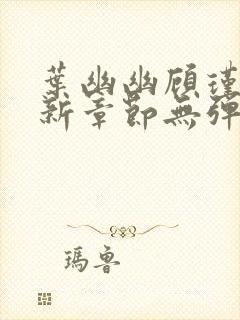 葉幽幽顧瑾
新章節無彈
瑪魯